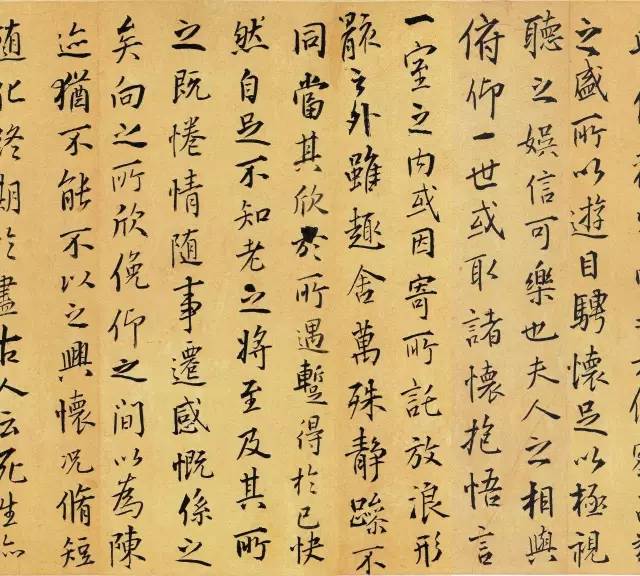 之盛所以遊目騁懷足以極視
聽之娛信可樂也夫人之相與
俯仰一世或取諸懷抱悟言
一室之内或因寄所託放浪形
骸之外雖趣舍萬殊静躁不
同當其欣於所遇蹔得於己快
然自足不知老之將至及其所
之既惓情随事遷感慨係之
矣向之所欣俛仰之間以為陳
迹猶不能不以之興懷況脩短
随化終期於盡古人云死生亦